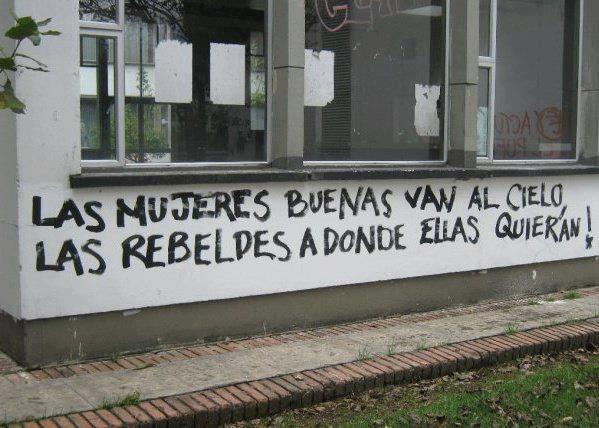 LAS MUJERES BUENAS VAN AL CIELO,
LAS REBELDES A DONDE ELLAS QUIERAN!